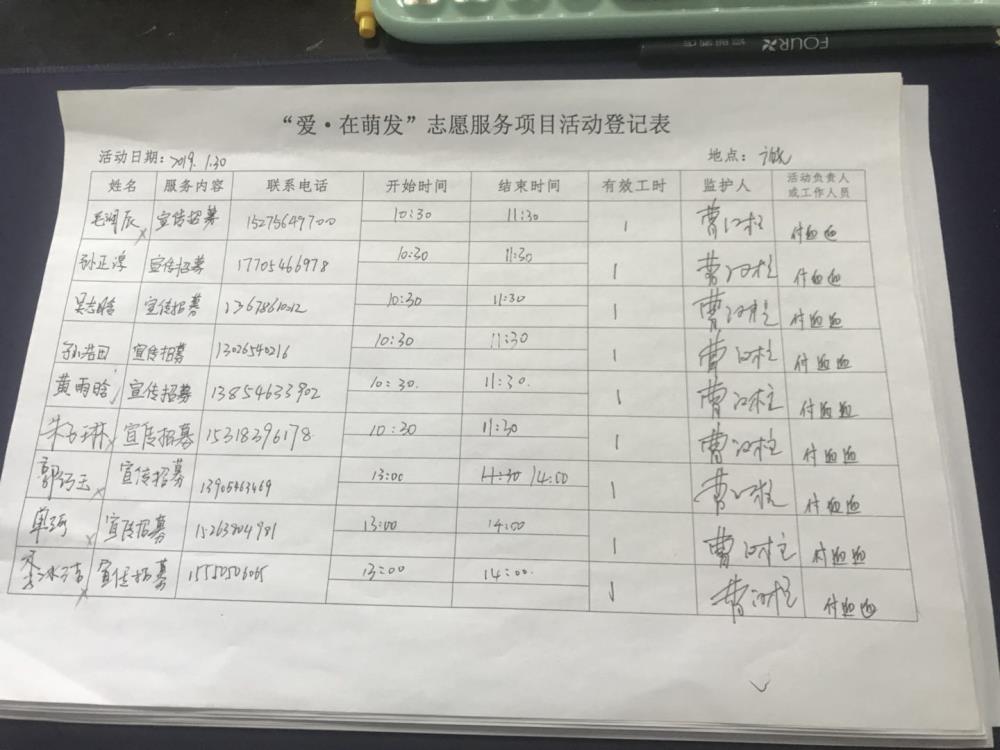 FOURX
“爱·在萌发”志愿服务项目活动登记表
活动日期：2019.1.30 地点：
姓名 服务内容 联系电话 开始时间 结束时间 有效工时 监护人 活动负责人或工作人员
毛润辰 宣传招募 15275649700 10:30 11:30 1 曹汉柱
孙正淳 宣传招募 17705466978 10:30 11:30 1 曹汉柱
吴志晗 宣传招募 10:30 11:30 1 曹汉柱
孙浩田 宣传招募 13026540216 10:30 11:30 1 曹汉柱
黄雨晗 宣传招募 13854633902 10:30 11:30 1 曹汉柱
宣传招募 15318396178 10:30 11:30 1 曹汉柱
宣传招募 13905463469 13:00 11:30 14:00 1 曹汉柱
宣传招募 15263804981 13:00 14:00 1 曹汉柱
宣传招募 15550506065 13:00 14:00 1 曹汉柱